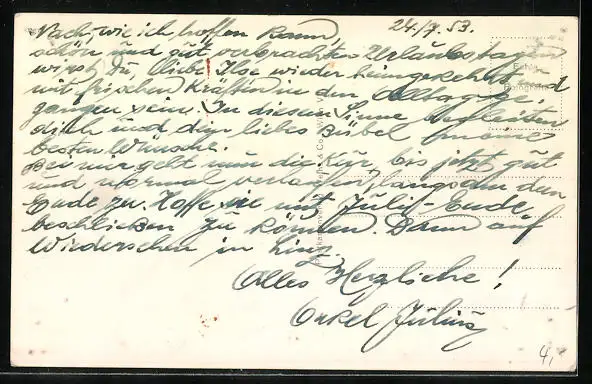 24./7. 53.
Nach, wie ich hoffen kann,
schön und gut verbrachten Urlaubstagen
wirst Du, liebe Ilse wieder heimgekehrt und
mit frischen Kräften in den Alltag ge-
gangen sein. In diesem Sinne begleiten
dich und dein liebes Bübel meine
besten Wünsche.
Bei mir geht nun die Kur, bis jetzt gut
und normal verlaufen, langsam dem
Ende zu. Hoffe sie mit Juli-Ende
beschließen zu können. Dann auf
Wiedersehen in Linz
Alles Herzliche!
Onkel Julius
4,